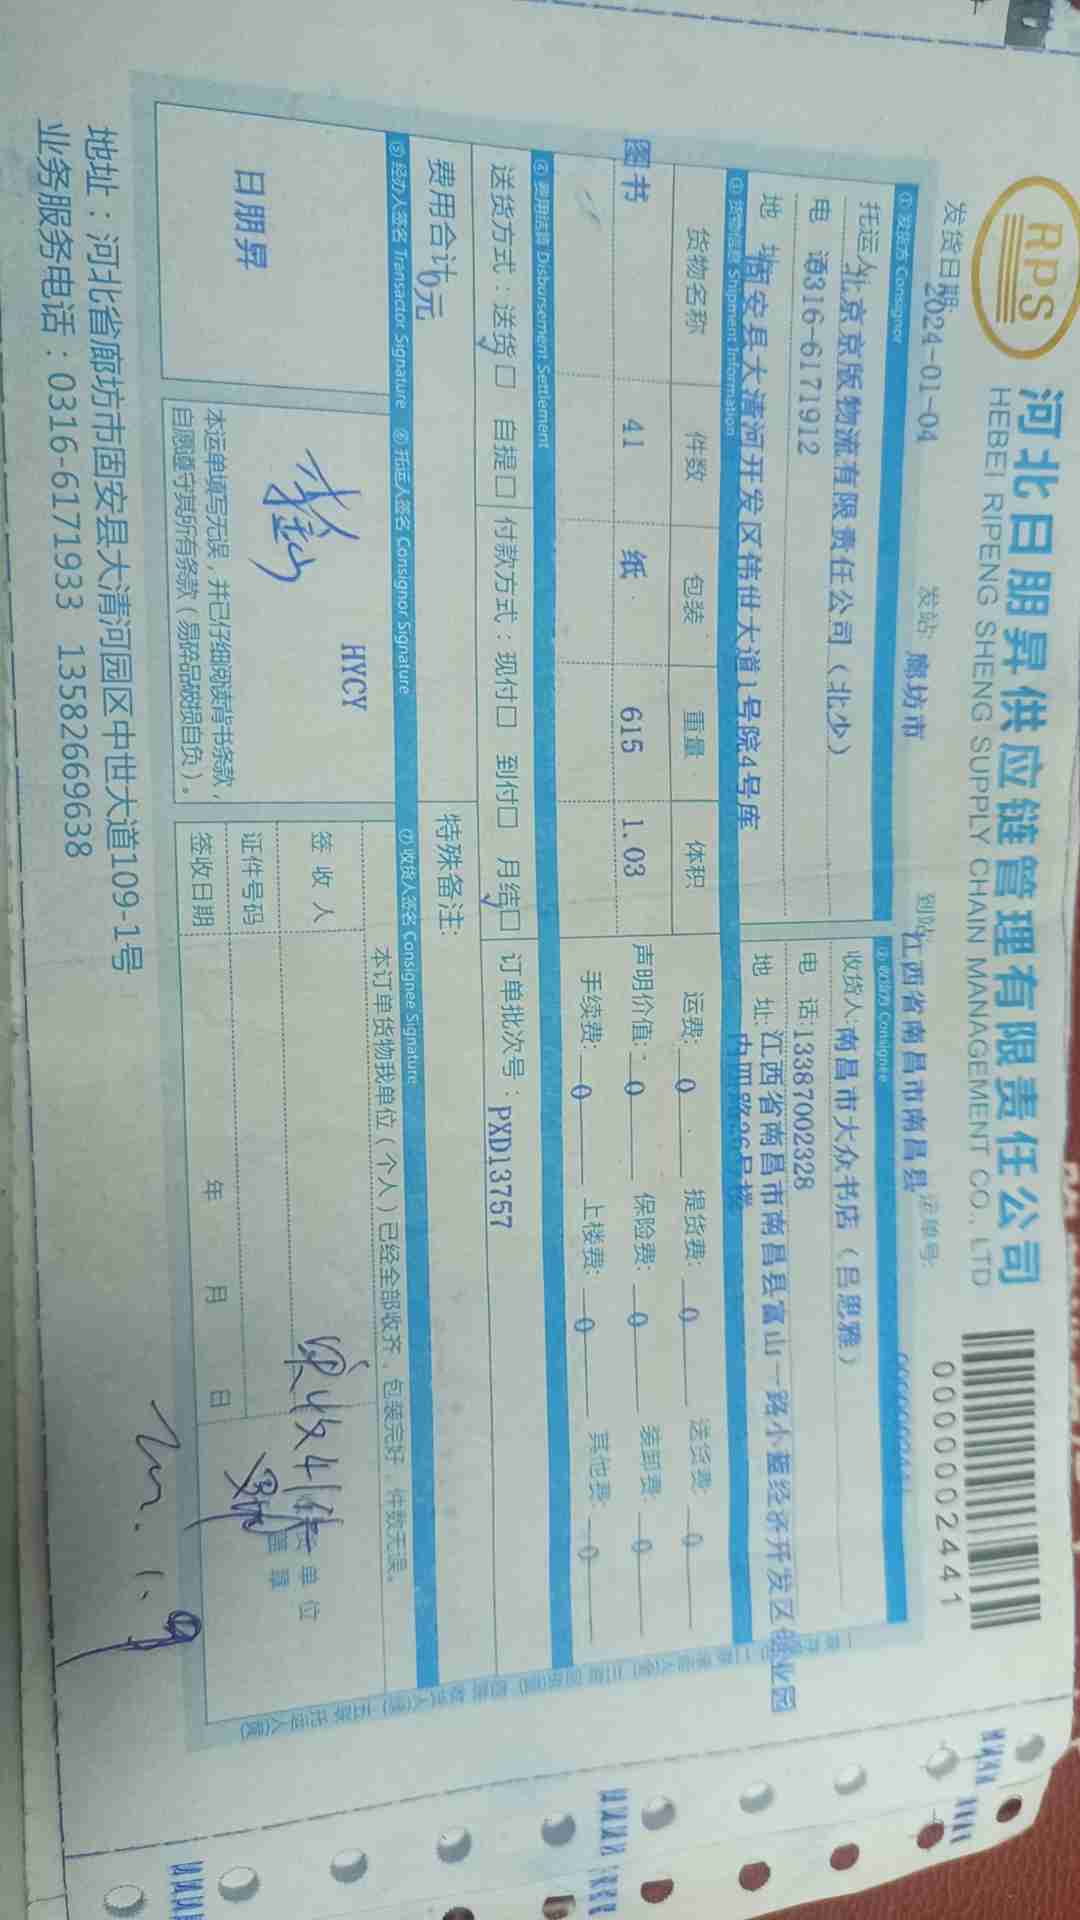 RPS
河北日朋昇供应链管理有限责任公司
HEBEI RIPENG SHENG SUPPLY CHAIN MANAGEMENT CO., LTD
0000002441
发货日期:2024-01-04 发站:廊坊市 到站:江西省南昌市南昌县 运单号:
① 发货方 Consignor
② 收货方 Consignee
托运人:北京京版物流有限责任公司（北少）
收货人:南昌市大众书店（吕思雅）
电 话:0316-6171912
电 话:13387002328
地 址:固安县大清河开发区伟世大道1号院4号库
地 址:江西省南昌市南昌县富山一路小蓝经济开发区 业园
③ 货物信息 Shipment Information
货物名称 件数 包装 重量 体积
图书 41 纸 615 1.03
运费: 0 提货费: 0 送货费: 0
声明价值: 0 保险费: 0 装卸费: 0
手续费: 0 上楼费: 0 其他费: 0
④ 费用结算 Disbursement Settlement
送货方式：送货☑ 自提□ 付款方式：现付□ 到付□ 月结☑ 订单批次号：PXD13757
费用合计:0元
特殊备注:
⑤ 经办人签名 Transactor Signature ⑥ 托运人签名 Consignor Signature ⑦ 收货人签名 Consignee Signature
日朋昇
HYCY
本运单填写无误，并已仔细阅读背书条款，
自愿遵守其所有条款（易碎品破损自负）。
本订单货物我单位（个人）已经全部收齐，包装完好，件数无误。
签 收 人
实收41件
单位
盖章
证件号码
签收日期 年 月 日
地址：河北省廊坊市固安县大清河园区中世大道109-1号
业务服务电话：0316-6171933 13582669638